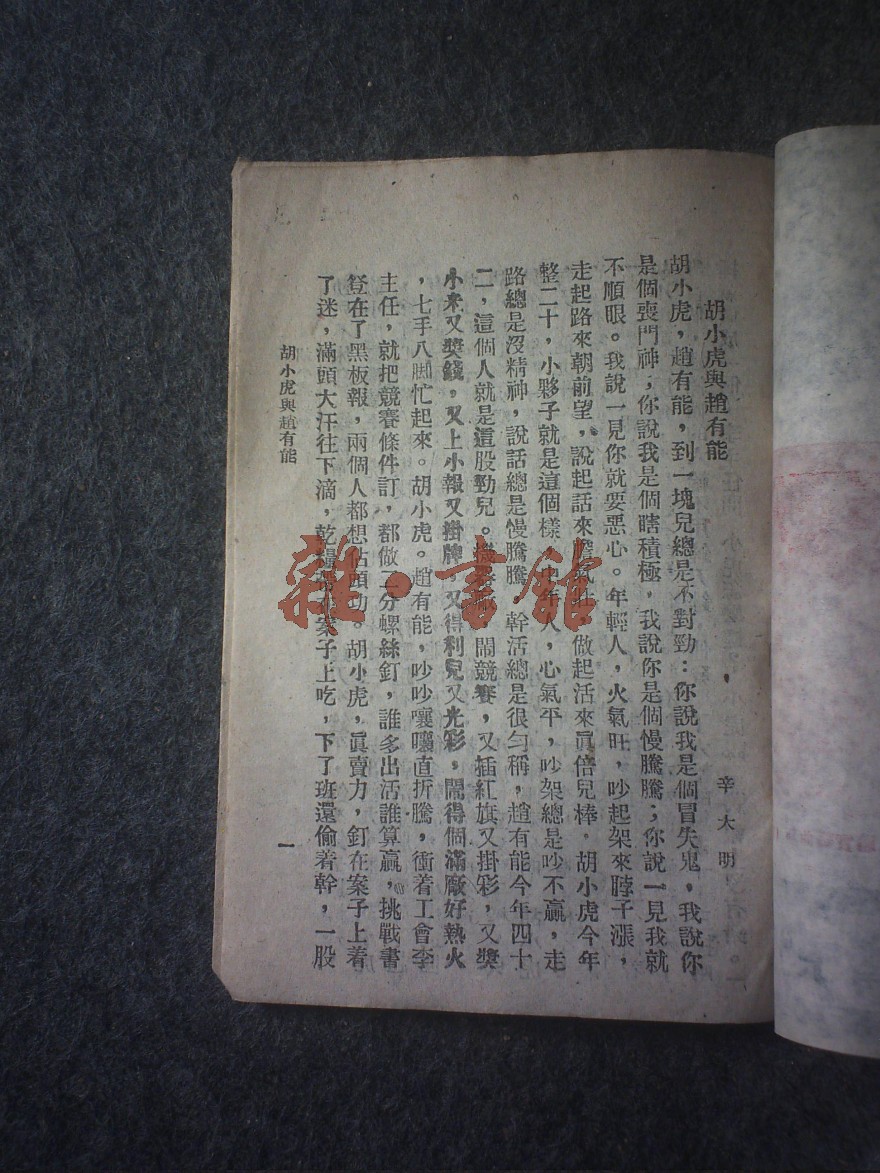 胡小虎與趙有能
辛大明
胡小虎，趙有能，到一塊兒總是不對勁：你說我是個冒失鬼，我說你
是個喪門神；你說我是個瞎積極，我說你是個慢騰騰；你說一見我就
不順眼。我說一見你就要惡心。年輕人，火氣旺，吵起架來脖子漲，
走起路來朝前望，說起話來氣壯，做起活來眞倍兒棒。胡小虎今年
整二十，小夥子就是這個樣。年人，心氣平，吵架總是吵不贏，走
路總是沒精神，說話總是慢騰騰，幹活總是很勻稱，趙有能今年四十
二，這個人就是這股勁兒。鬧競賽，又插紅旗又掛彩，又獎
小米又獎錢，又上小報又掛牌，又得利兒又光彩，鬧得個滿廠好熱火
，七手八脚忙起來。胡小虎。趙有能，吵吵嚷嚷直折騰，衝着工會李
主任，就把競賽條件訂，都做二分螺絲釘，誰多出活誰算贏，挑戰書
登在了黑板報，兩個人都想佔頭功。胡小虎，眞賣力，釘在案子上着
了迷，滿頭大汗往下滴，乾糧案子上吃，下了班還偷着幹，一股
胡小虎與趙有能
一
雜·書館